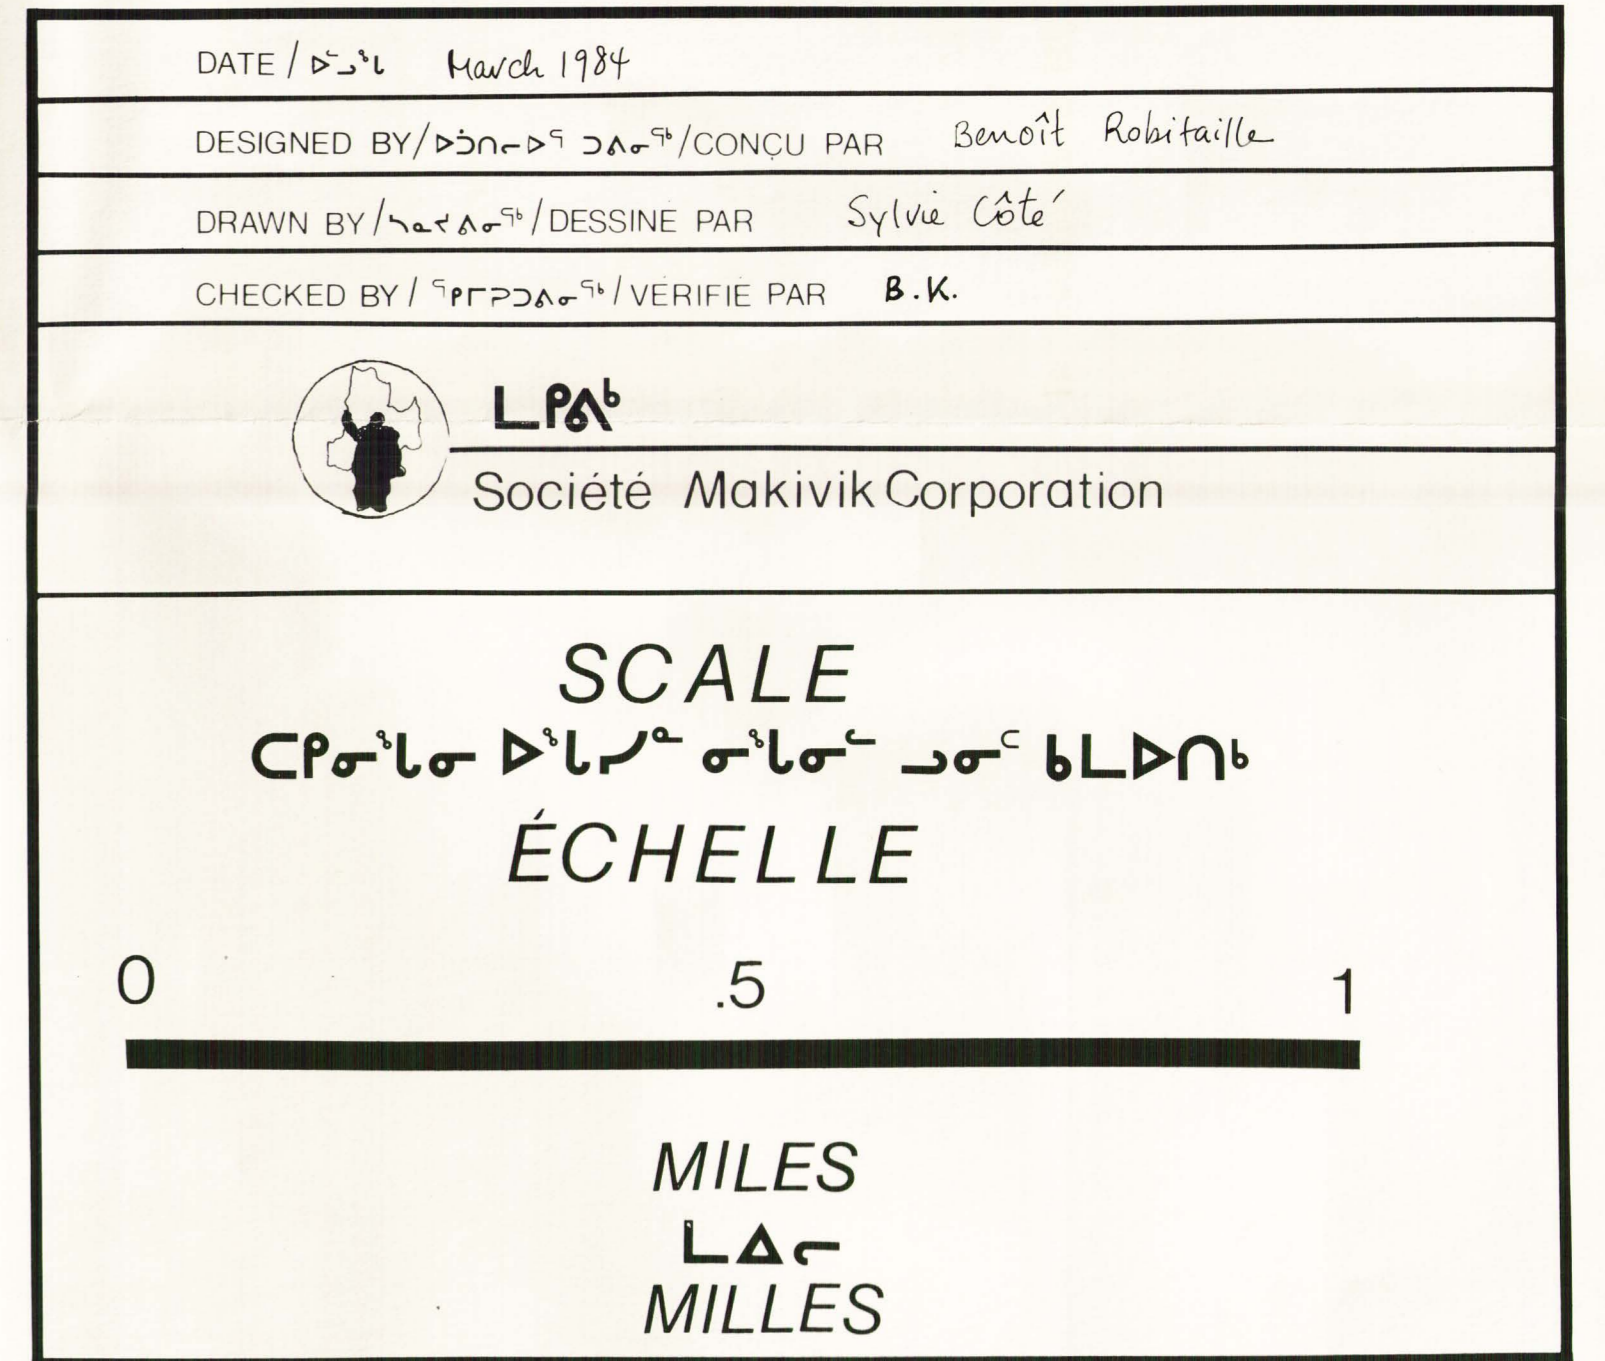 DATE / ᐅᓪᓗᖓ March 1984
DESIGNED BY/ᐅᓘᑎᓕᐅᕐ ᑐᕕᓂᖅ/CONÇU PAR Benoît Robitaille
DRAWN BY/ᓴᓇᔪᕕᓂᖅ/DESSINE PAR Sylvie Côté
CHECKED BY / ᕿᒥᕈᑐᕕᓂᖅ/VERIFIE PAR B.K.
ᒪᑭᕕᒃ
Société Makivik Corporation
SCALE
ᑕᑭᓂᖓᓂ ᐅᖓᓯᓐ ᓂᖓᓂᓪ ᓗᓂᑦ ᑲᒪᐅᑎᒃ
ÉCHELLE
0 .5 1
MILES
ᒪᐃᓕ
MILLES